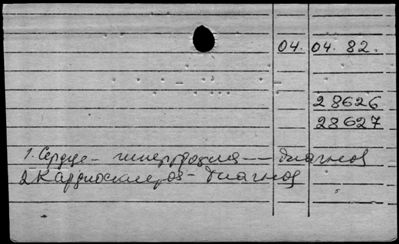 04. 04. 82.
28626
28627
1. Сердце - гипертрофия - диагноз
2. Кардиосклероз - диагноз